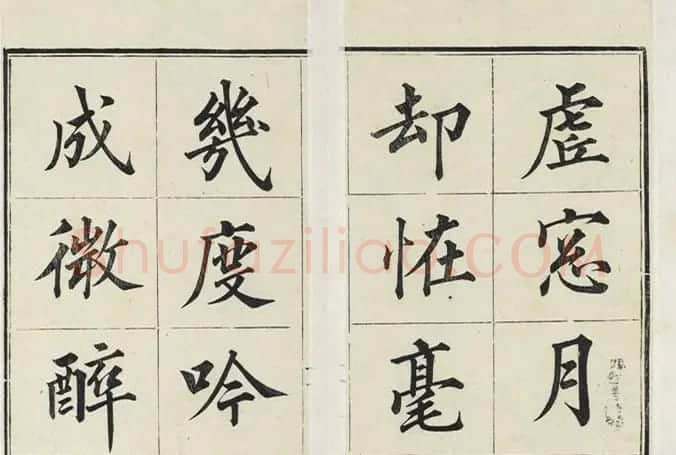 虗窓月
却恠毫
幾度吟
成微醉
shufaziliao.COM